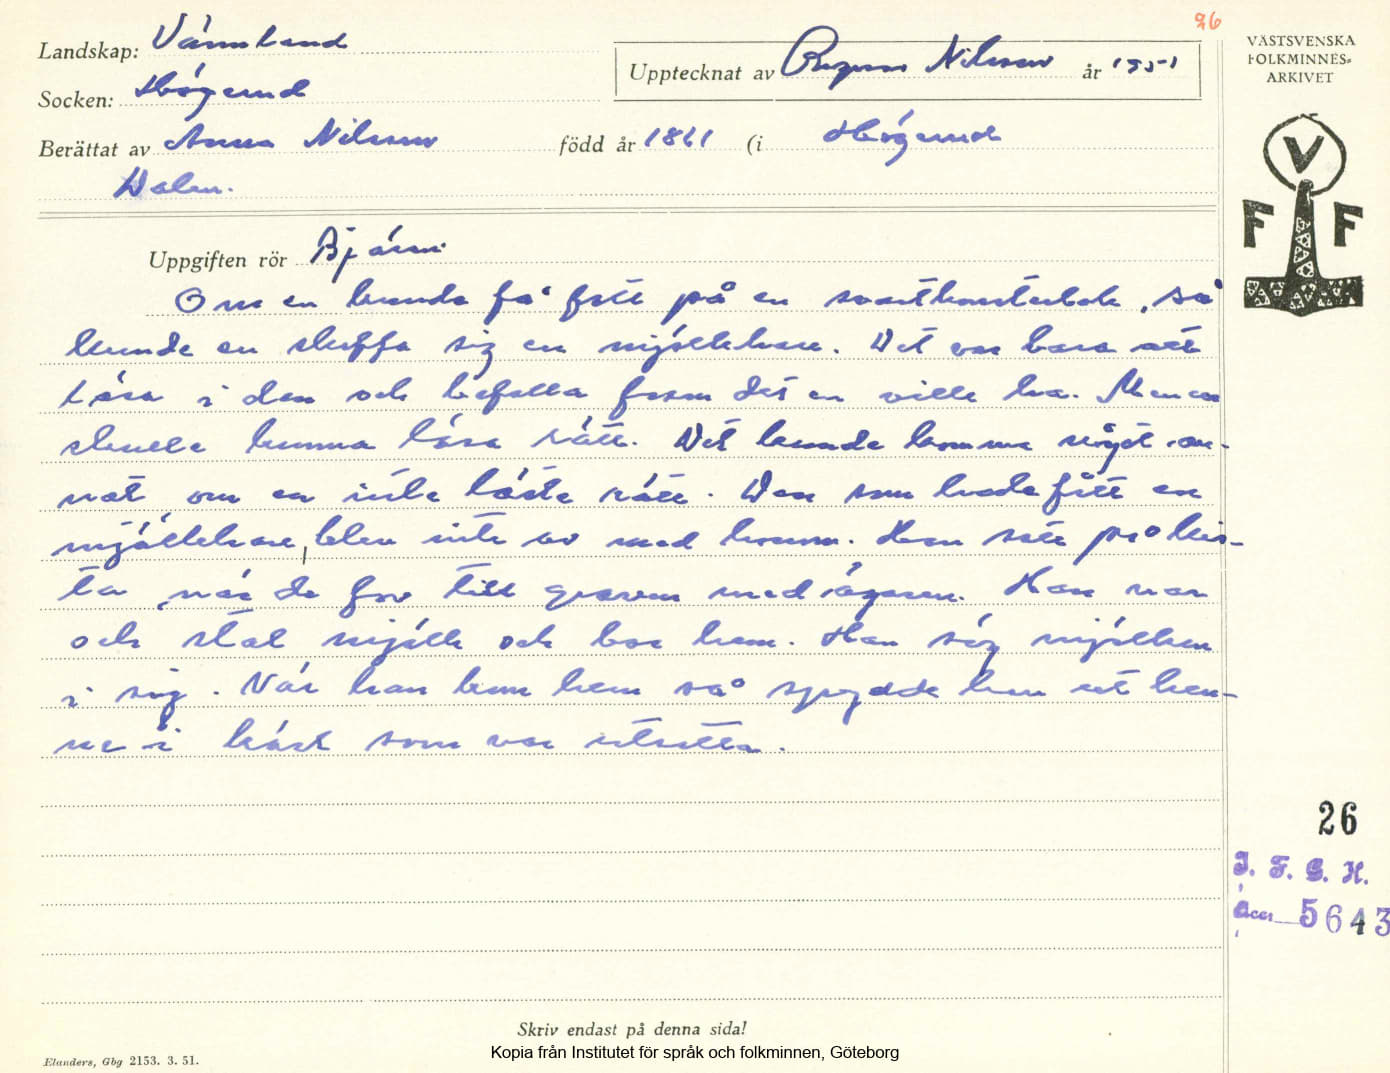 26
Landskap: Värmland
Upptecknat av Ragnar Nilsson år 1951
VÄSTSVENSKA
FOLKMINNES-
ARKIVET
Socken: Högerud
Berättat av Anna Nilsson född år 1861 (i Högerud
Dalen.
V
F F
Uppgiften rör Bjärn
Om en kunde få fatt på en svartkonstebok, så
kunde en skaffa sig en mjölkhare. Det var bara att
läsa i den och befalla fram det en ville ha. Men en
skulle kunna läsa rätt. Det kunde komma något an-
nat om en inte läste rätt. Den som hade fått en
mjölkhare, blev inte av med honom. Han satt på kis-
tan, när de for till graven med ägaren. Haren var
och stal mjölk och bar hem. Han sög mjölken
i sig. När han kom hem så spydde han ut hen-
ne i kärl som var utsatta.
26
I. F. G. H.
Acc. 5643
Skriv endast på denna sida!
Kopia från Institutet för språk och folkminnen, Göteborg
Elanders, Gbg 2153. 3. 51.